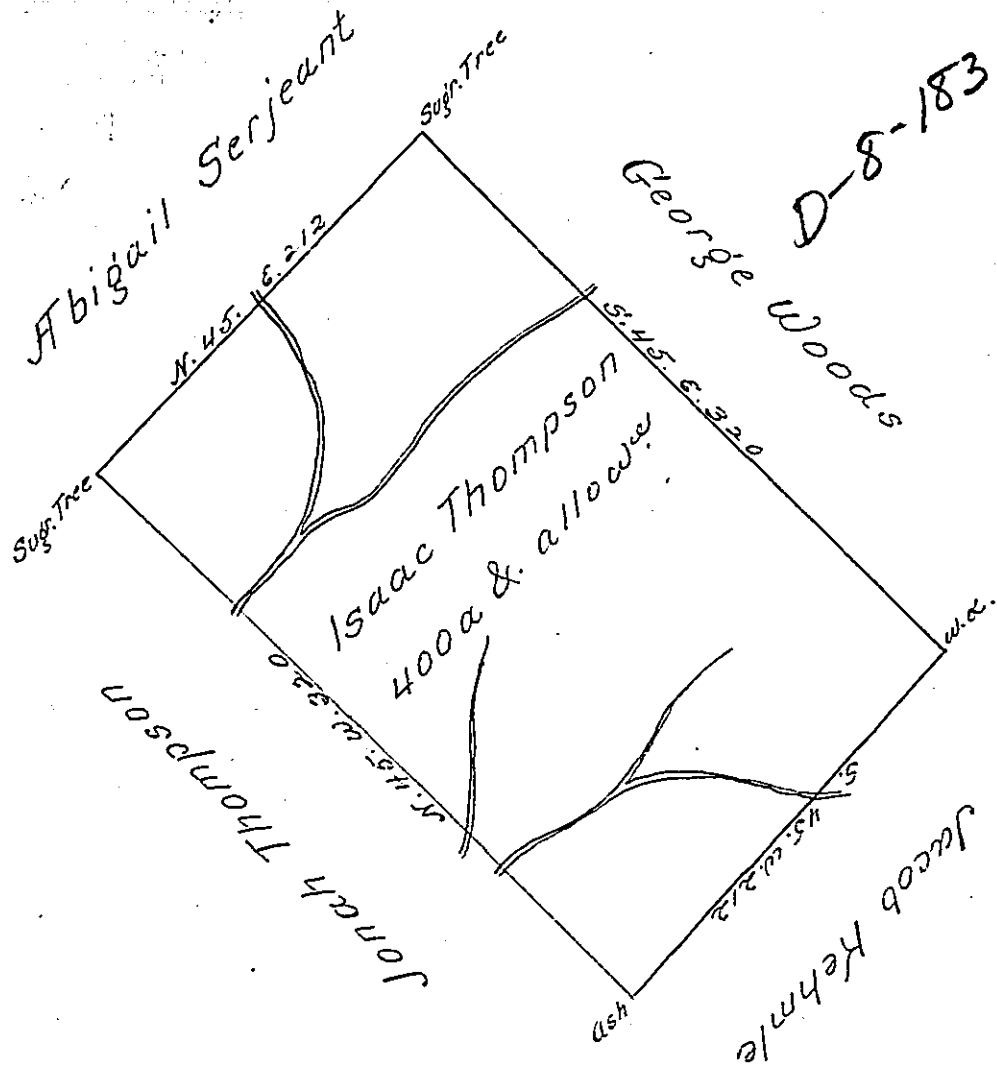 D-8-183
Abigail Serjeant
Sugr. Tree
George Woods
N. 45. E. 212
S. 45. E. 320
Sugr. Tree
Isaac Thompson
400a & allowce
W.O.
N. 45. W. 320
S. 45. W. 212
Jonah Thompson
Jacob Kehmle
Ash